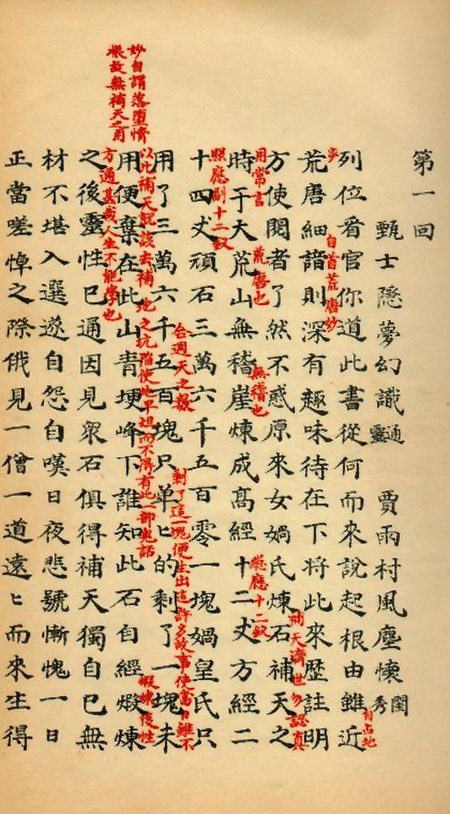 第一回
甄士隱夢幻識通靈 賈雨村風塵懷閨秀
列位看官你道此書從何而來說起根由雖近
自占地
步
荒唐細諳則深有趣味待在下將此來歷註明
自首荒唐妙
方使閱者了然不惑原來女媧氏煉石補天之
補天濟世勿認真
用常言
時于大荒山無稽崖煉成高經十二丈方經二
荒唐也
無稽也
總應十二釵
十四丈頑石三萬六千五百零一塊媧皇氏只
照應副十二釵
用了三萬六千五百塊只单匕的剩了一塊未
合週天之數
剩了這一塊便生出這許多故事使當日雖不
以此補天就該去補地之坑陷使地平坦而不得有此一部鬼話
用便棄在此山青埂峰下誰知此石自經煅煉
煅煉後性
方通甚哉人生不能學也
之後靈性已通因見衆石俱得補天獨自己無
妙自謂落墮情
根故無補天之用
材不堪入選遂自怨自嘆日夜悲號慚愧一日
正當嗟悼之際俄見一僧一道遠匕而來生得